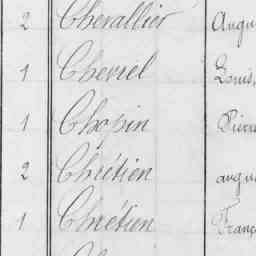 2 Chevallier Augu
1 Cheriel Louis,
1 Chopin Pierre
2 Chrétien augu
1 Chrétien Franç